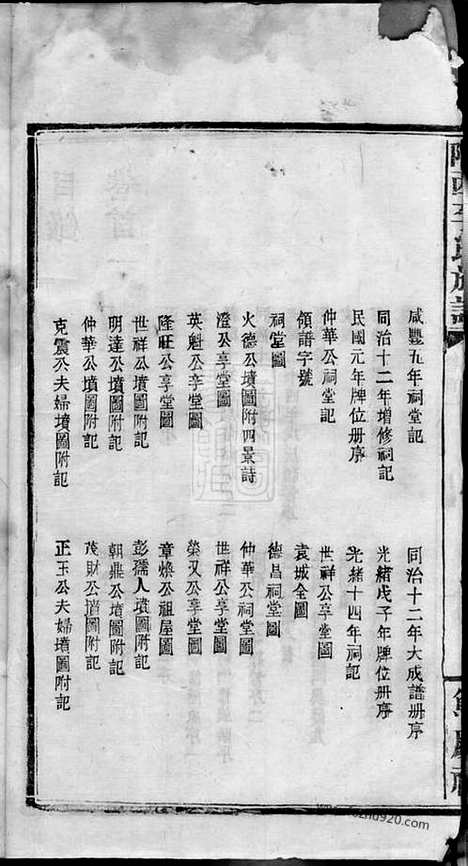 咸豐五年祠堂記
同治十二年大成譜册序
同治十二年增修祠記
光緒戊子年牌位册序
民國元年牌位册序
光緒十四年祠記
仲華公祠堂記
世祥公享堂圖
領譜字號
袁城全圖
祠堂圖
德昌祠堂圖
火德公墳圖附四景詩
仲華公祠堂圖
澄公享堂圖
世祥公享堂圖
英魁公享堂圖
榮又公享堂圖
隆旺公享堂圖
章煥公祖屋圖
世祥公墳圖附記
彭孺人墳圖附記
明達公墳圖附記
朝鼎公墳圖附記
仲華公墳圖附記
茂財公墳圖附記
克震公夫婦墳圖附記
正玉公夫婦墳圖附記